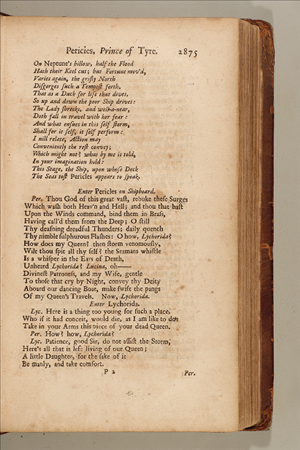 Pericles, Prince of Tyre. 2875
On Neptune's billow, half the Flood
Hath their Keel cut; but Fortune mov'd,
Varies again, the grisly North
Disgorges such a Tempest forth,
That as a Duck for life that dives,
So up and down the poor Ship drives:
The Lady shrieks, and well-a-near,
Doth fall in travel with her fear:
And what ensues in this self storm,
Shall for it self, it self perform:
I nill relate, Action may
Conveniently the rest convey;
Which might not? what by me is told,
In your imagination hold:
This Stage, the Ship, upon whose Deck
The Seas tost Pericles appears to speak.
Enter Pericles on Shipboard.
Per. Thou God of this great vast, rebuke these Surges
Which wash both Heav'n and Hell; and thou that hast
Upon the Winds command, bind them in Brass,
Having call'd them from the Deep; O still
Thy deafning dreadful Thunders; daily quench
Thy nimble sulphurous Flashes: O how, Lychorida?
How does my Queen? then storm venomously,
Wilt thou spit all thy self? the Seamans whistle
Is a whisper in the Ears of Death,
Unheard Lychorida? Lucina, oh——
Divinest Patroness, and my Wife, gentle
To those that cry by Night, convey thy Deity
Aboard our dancing Boat, make swift the pangs
Of my Queen's Travels. Now, Lychorida.
Enter Lychorida.
Lyc. Here is a thing too young for such a place,
Who if it had conceit, would die, as I am like to do:
Take in your Arms this piece of your dead Queen.
Per. How? how, Lychorida?
Lyc. Patience, good Sir, do not assist the Storm,
Here's all that is left living of our Queen;
A little Daughter, for the sake of it
Be manly, and take comfort.
P 2 Per.